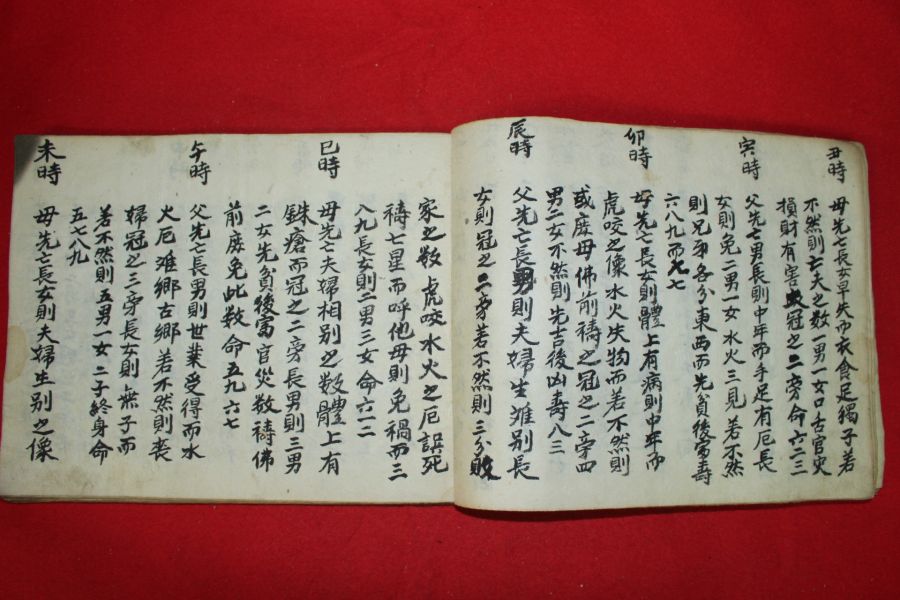 丑時 母先亡長女早失而衣食足獨子若
不然則亡夫之数一男一女口舌官灾
損財有害冠之二旁命六二三
寅時 父先亡男長則中年而手足有厄長
女則免二男一女水火三見若不然
則兄弟各分東西而先貧後富壽
六八九而七七
卯時 母先亡長女則體上有病則中年而
虎咬之像水火失物而若不然則
或庶母佛前禱之冠之二旁四
男二女不然則先吉後凶壽八三
辰時 父先亡長男則夫婦生離別長
女則冠之二旁若不然則三分敗
家之数虎咬水火之厄誤死
禱七星而呼他母則免禍而三
八九長女則二男三女命六一二
巳時 母先亡夫婦相别之数體上有
銖瘡而冠之二旁長男則三男
二女先貧後富官災数禱佛
前庶免此数命五九六七
午時 父先亡長男則世業受得而水
火厄难鄉古鄉若不然則喪
婦冠之三旁長女則無子而
若不然則五男一女二子終身命
五七八九
未時 母先亡長女則夫婦生别之像